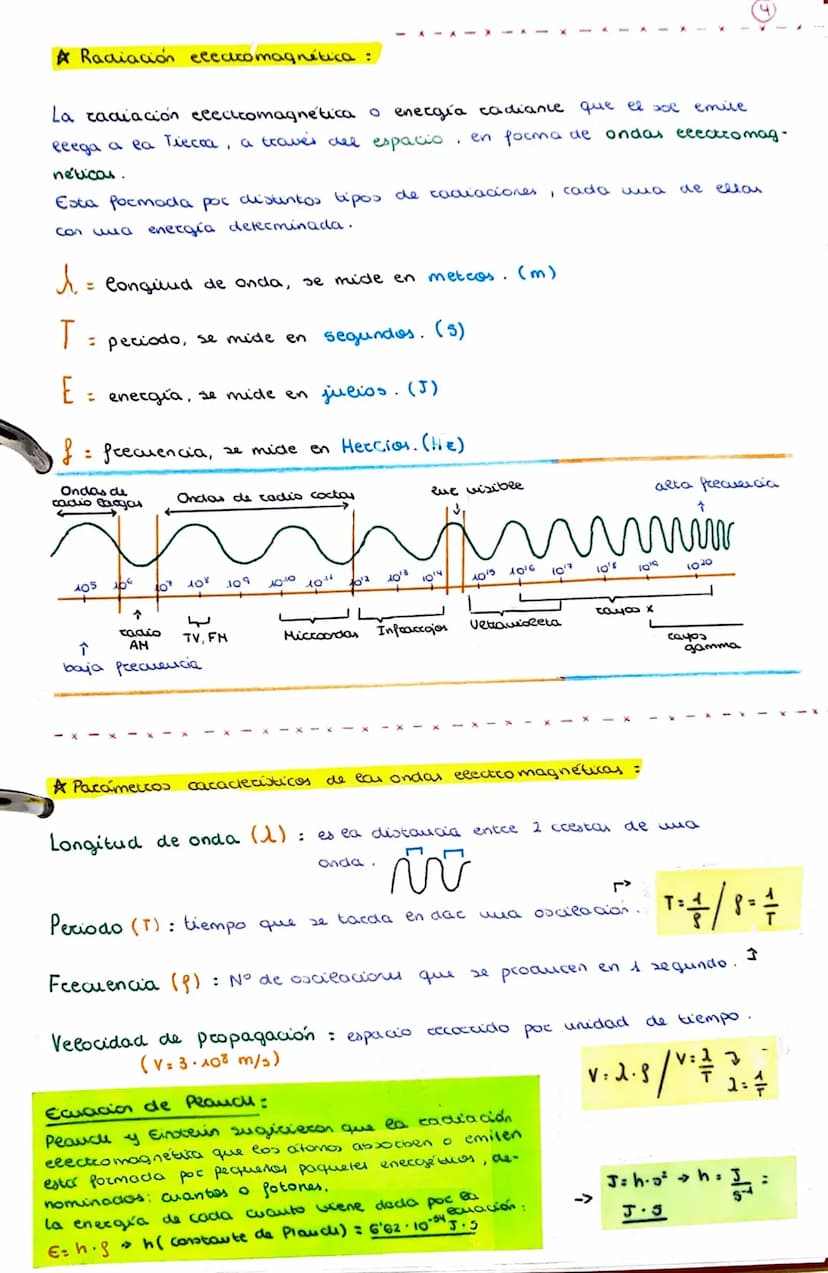 4
☆ Radiación electromagnética :
La radiación electromagnética o energía radiante que el sol emite
llega a la Tierra, a través del espacio, en forma de ondas electromag-
néticas.
Esta formada por distintos tipos de radiaciones, cada una de ellas
con una energía determinada.
λ = longitud de onda, se mide en metros. (m)
T = periodo, se mide en segundos. (s)
E = energía, se mide en julios. (J)
f = frecuencia, se mide en Hercios. (Hz)
Ondas de
radio largas
Ondas de radio cortas
luz visible
alta frecuencia
10⁵ 10⁶ 10⁷ 10⁸ 10⁹ 10¹⁰ 10¹¹ 10¹² 10¹³ 10¹⁴ 10¹⁵ 10¹⁶ 10¹⁷ 10¹⁸ 10¹⁹ 10²⁰
radio
AM
TV, FM
Microondas
Infrarrojos
Ultravioleta
rayos x
rayos
gamma
baja frecuencia
☆ Parámetros característicos de las ondas electromagnéticas :
Longitud de onda (λ) : es la distancia entre 2 crestas de una
onda.
Periodo (T) : tiempo que se tarda en dar una oscilación.
T = 1/f / f = 1/T
Frecuencia (f) : Nº de oscilaciones que se producen en 1 segundo.
Velocidad de propagación : espacio recorrido por unidad de tiempo.
(V = 3·10⁸ m/s)
V = λ·f / V = λ/T
λ = 1/T
Ecuación de Planck :
Planck y Einstein sugirieron que la radiación
electromagnética que los átomos absorben o emiten
está formada por pequeños paquetes energéticos, de-
nominados: cuantos o fotones.
la energía de cada cuanto viene dada por la
ecuación :
E = h·f → h (constante de Planck) = 6'62·10⁻³⁴ J·s
→ J = h·s⁻¹ → h = J/s⁻¹ =
J·s